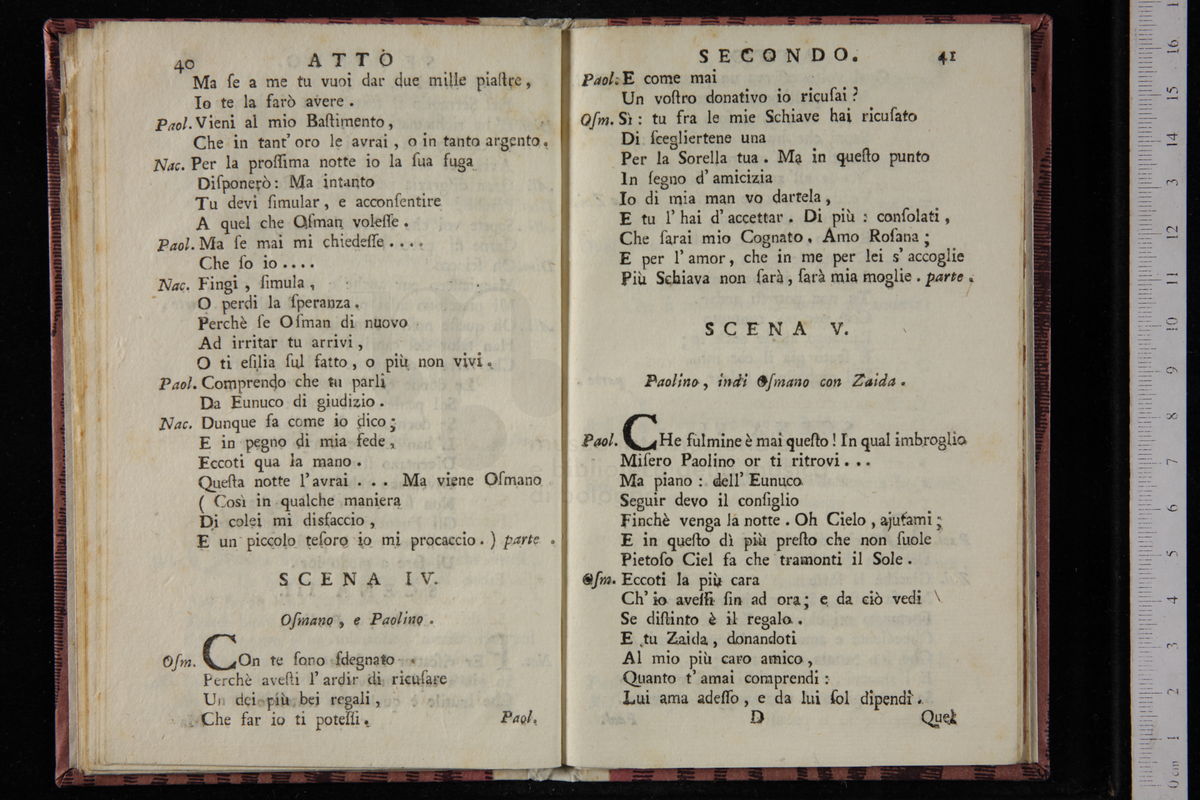 40 ATTO
Ma ſe a me tu vuoi dar due mille piaſtre,
Io te la farò avere.
Paol. Vieni al mio Baſtimento,
Che in tant' oro le avrai, o in tanto argento.
Nac. Per la proſſima notte io la ſua fuga
Diſponerò: Ma intanto
Tu devi ſimular, e acconſentire
A quel che Oſman voleſſe.
Paol. Ma ſe mai mi chiedeſſe....
Che ſo io....
Nac. Fingi, ſimula,
O perdi la ſperanza.
Perchè ſe Oſman di nuovo
Ad irritar tu arrivi,
O ti eſilia ſul fatto, o più non vivi.
Paol. Comprendo che tu parli
Da Eunuco di giudizio.
Nac. Dunque fa come io dico;
E in pegno di mia fede,
Eccoti qua la mano.
Queſta notte l'avrai... Ma viene Oſmano
( Così in qualche maniera
Di colei mi disfaccio,
E un piccolo teſoro io mi procaccio. ) parte.
SCENA IV.
Oſmano, e Paolino.
Oſm. COn te ſono ſdegnato
Perchè aveſti l'ardir di ricuſare
Un dei più bei regali,
Che far io ti poteſſi.
Paol.
SECONDO. 41
Paol. E come mai
Un voſtro donativo io ricuſai?
Oſm. Sì: tu fra le mie Schiave hai ricuſato
Di ſcegliertene una
Per la Sorella tua. Ma in queſto punto
In ſegno d'amicizia
Io di mia man vo dartela,
E tu l'hai d'accettar. Di più: conſolati,
Che ſarai mio Cognato. Amo Roſana;
E per l'amor, che in me per lei s'accoglie
Più Schiava non ſarà, ſarà mia moglie. parte.
SCENA V.
Paolino, indi Oſmano con Zaida.
Paol. CHe fulmine è mai queſto! In qual imbroglio
Miſero Paolino or ti ritrovi...
Ma piano: dell' Eunuco
Seguir devo il conſiglio
Finchè venga la notte. Oh Cielo, ajutami;
E in queſto dì più preſto che non ſuole
Pietoſo Ciel fa che tramonti il Sole.
Oſm. Eccoti la più cara
Ch' io aveſſi ſin ad ora; e da ciò vedi
Se diſtinto è il regalo.
E tu Zaida, donandoti
Al mio più caro amico,
Quanto t'amai comprendi:
Lui ama adeſſo, e da lui ſol dipendi.
D Quel